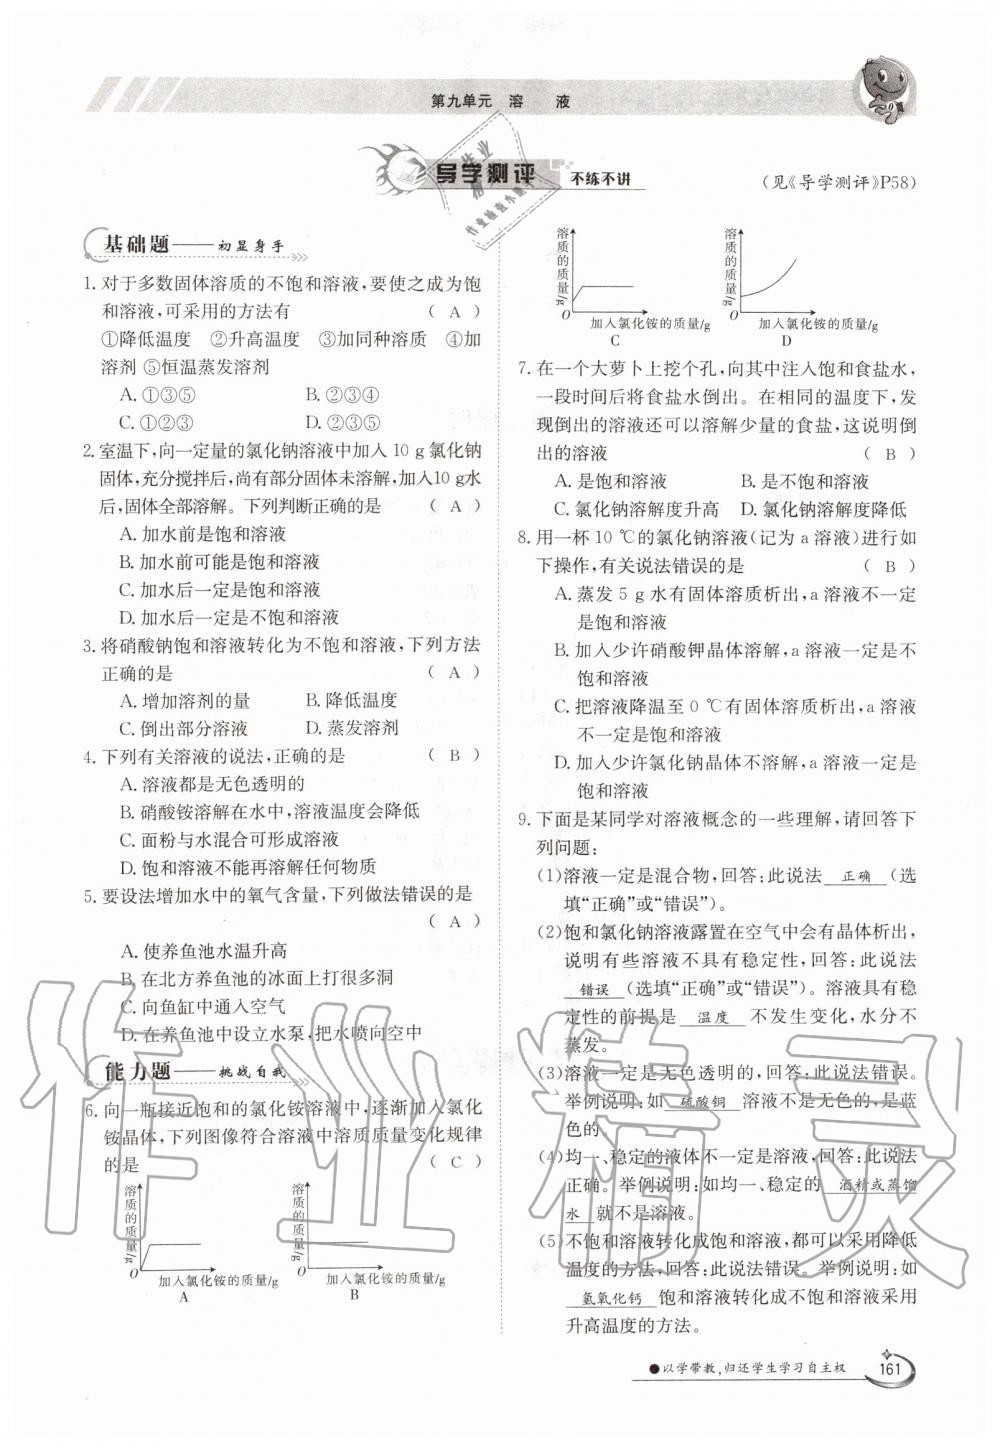 第九单元 溶 液
导学测评 不练不讲
(见《导学测评》P58)
基础题——初显身手
1. 对于多数固体溶质的不饱和溶液,要使之成为饱
和溶液,可采用的方法有 ( A )
①降低温度 ②升高温度 ③加同种溶质 ④加
溶剂 ⑤恒温蒸发溶剂
A. ①③⑤ B. ②③④
C. ①②③ D. ②③⑤
2. 室温下,向一定量的氯化钠溶液中加入 10 g 氯化钠
固体,充分搅拌后,尚有部分固体未溶解,加入10 g水
后,固体全部溶解。下列判断正确的是 ( A )
A. 加水前是饱和溶液
B. 加水前可能是饱和溶液
C. 加水后一定是饱和溶液
D. 加水后一定是不饱和溶液
3. 将硝酸钠饱和溶液转化为不饱和溶液,下列方法
正确的是 ( A )
A. 增加溶剂的量 B. 降低温度
C. 倒出部分溶液 D. 蒸发溶剂
4. 下列有关溶液的说法,正确的是 ( B )
A. 溶液都是无色透明的
B. 硝酸铵溶解在水中,溶液温度会降低
C. 面粉与水混合可形成溶液
D. 饱和溶液不能再溶解任何物质
5. 要设法增加水中的氧气含量,下列做法错误的是
( A )
A. 使养鱼池水温升高
B. 在北方养鱼池的冰面上打很多洞
C. 向鱼缸中通入空气
D. 在养鱼池中设立水泵,把水喷向空中
能力题——挑战自我
6. 向一瓶接近饱和的氯化铵溶液中,逐渐加入氯化
铵晶体,下列图像符合溶液中溶质质量变化规律
的是 ( C )
溶质的质量/g
O
加入氯化铵的质量/g
A
溶质的质量/g
O
加入氯化铵的质量/g
B
溶质的质量/g
O
加入氯化铵的质量/g
C
溶质的质量/g
O
加入氯化铵的质量/g
D
7. 在一个大萝卜上挖个孔,向其中注入饱和食盐水,
一段时间后将食盐水倒出。在相同的温度下,发
现倒出的溶液还可以溶解少量的食盐,这说明倒
出的溶液 ( B )
A. 是饱和溶液 B. 是不饱和溶液
C. 氯化钠溶解度升高 D. 氯化钠溶解度降低
8. 用一杯 10 ℃的氯化钠溶液(记为 a 溶液)进行如
下操作,有关说法错误的是 ( B )
A. 蒸发 5 g 水有固体溶质析出,a 溶液不一定
是饱和溶液
B. 加入少许硝酸钾晶体溶解,a 溶液一定是不
饱和溶液
C. 把溶液降温至 0 ℃有固体溶质析出,a 溶液
不一定是饱和溶液
D. 加入少许氯化钠晶体不溶解,a 溶液一定是
饱和溶液
9. 下面是某同学对溶液概念的一些理解,请回答下
列问题:
(1)溶液一定是混合物,回答:此说法 正确 (选
填“正确”或“错误”)。
(2)饱和氯化钠溶液露置在空气中会有晶体析出,
说明有些溶液不具有稳定性,回答:此说法
错误 (选填“正确”或“错误”)。溶液具有稳
定性的前提是 温度 不发生变化,水分不
蒸发。
(3)溶液一定是无色透明的,回答:此说法错误。
举例说明:如 硫酸铜 溶液不是无色的,是蓝
色的。
(4)均一、稳定的液体不一定是溶液,回答:此说法
正确。举例说明:如均一、稳定的 酒精或蒸馏
水 就不是溶液。
(5)不饱和溶液转化成饱和溶液,都可以采用降低
温度的方法,回答:此说法错误。举例说明:如
氢氧化钙 饱和溶液转化成不饱和溶液采用
升高温度的方法。
●以学带教,归还学生学习自主权 161
作业精灵